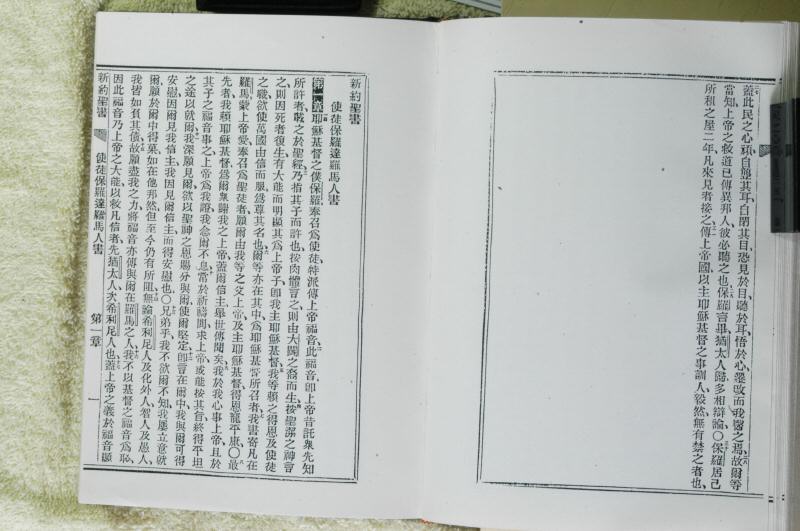 蓋此民之心頑、自塞其耳、自閉其目、恐見於目、聽於耳、悟於心、遷改而我醫之焉、故爾等
當知上帝之救道已傳異邦人、彼必聽之也、保羅言畢、猶太人歸、多相辯論、○保羅居己
所租之屋二年、凡來見者接之、傳上帝國、以主耶穌基督之事訓人、毅然無有禁之者也、
新約聖書
使徒保羅達羅馬人書
第一章耶穌基督之僕保羅、奉召為使徒、特派傳上帝福音、此福音、卽上帝昔託衆先知
所許者、載之於聖經、乃指其子而許也、按肉體言之、則由大闢之裔而生、按聖潔之神言
之、則因死者復生、有大能而明顯其為上帝子、卽我主耶穌基督、我等賴之得恩、及使徒
之職、欲使萬國由信而服、為尊其名也、爾等亦在其中、為耶穌基督所召者、我書寄凡在
羅馬蒙上帝愛、奉召為聖徒者、願爾由我等之父上帝、及主耶穌基督、得恩寵平康、○最
先者、我賴耶穌基督、為爾衆謝我之上帝、蓋爾信主、舉世傳聞矣、我於我心事上帝、且於
其子之福音事之、上帝為我證、我念爾不息、當於祈禱間、求上帝、或能按其旨、終得平坦
之途、以就爾、我深願見爾、欲以聖神之恩賜分與爾、使爾堅定、卽言在爾中、我與爾可得
安慰、因爾見我信主、我因見爾信主、而得安慰也、○兄弟乎、我不欲爾不知、我屢立意就
爾、願於爾中得菓、如在他邦然、但至今仍有所阻、無論希利尼人、及化外人、智人、及愚人、
我皆如負其債、故願盡我之力、將福音亦傳與爾在羅馬之人、我不以基督之福音為恥、
因此福音、乃上帝之大能、以救凡信者、先猶太人、次希利尼人也、蓋上帝之義、於福音顯
新約聖書
使徒保羅達羅馬人書
第一章
一